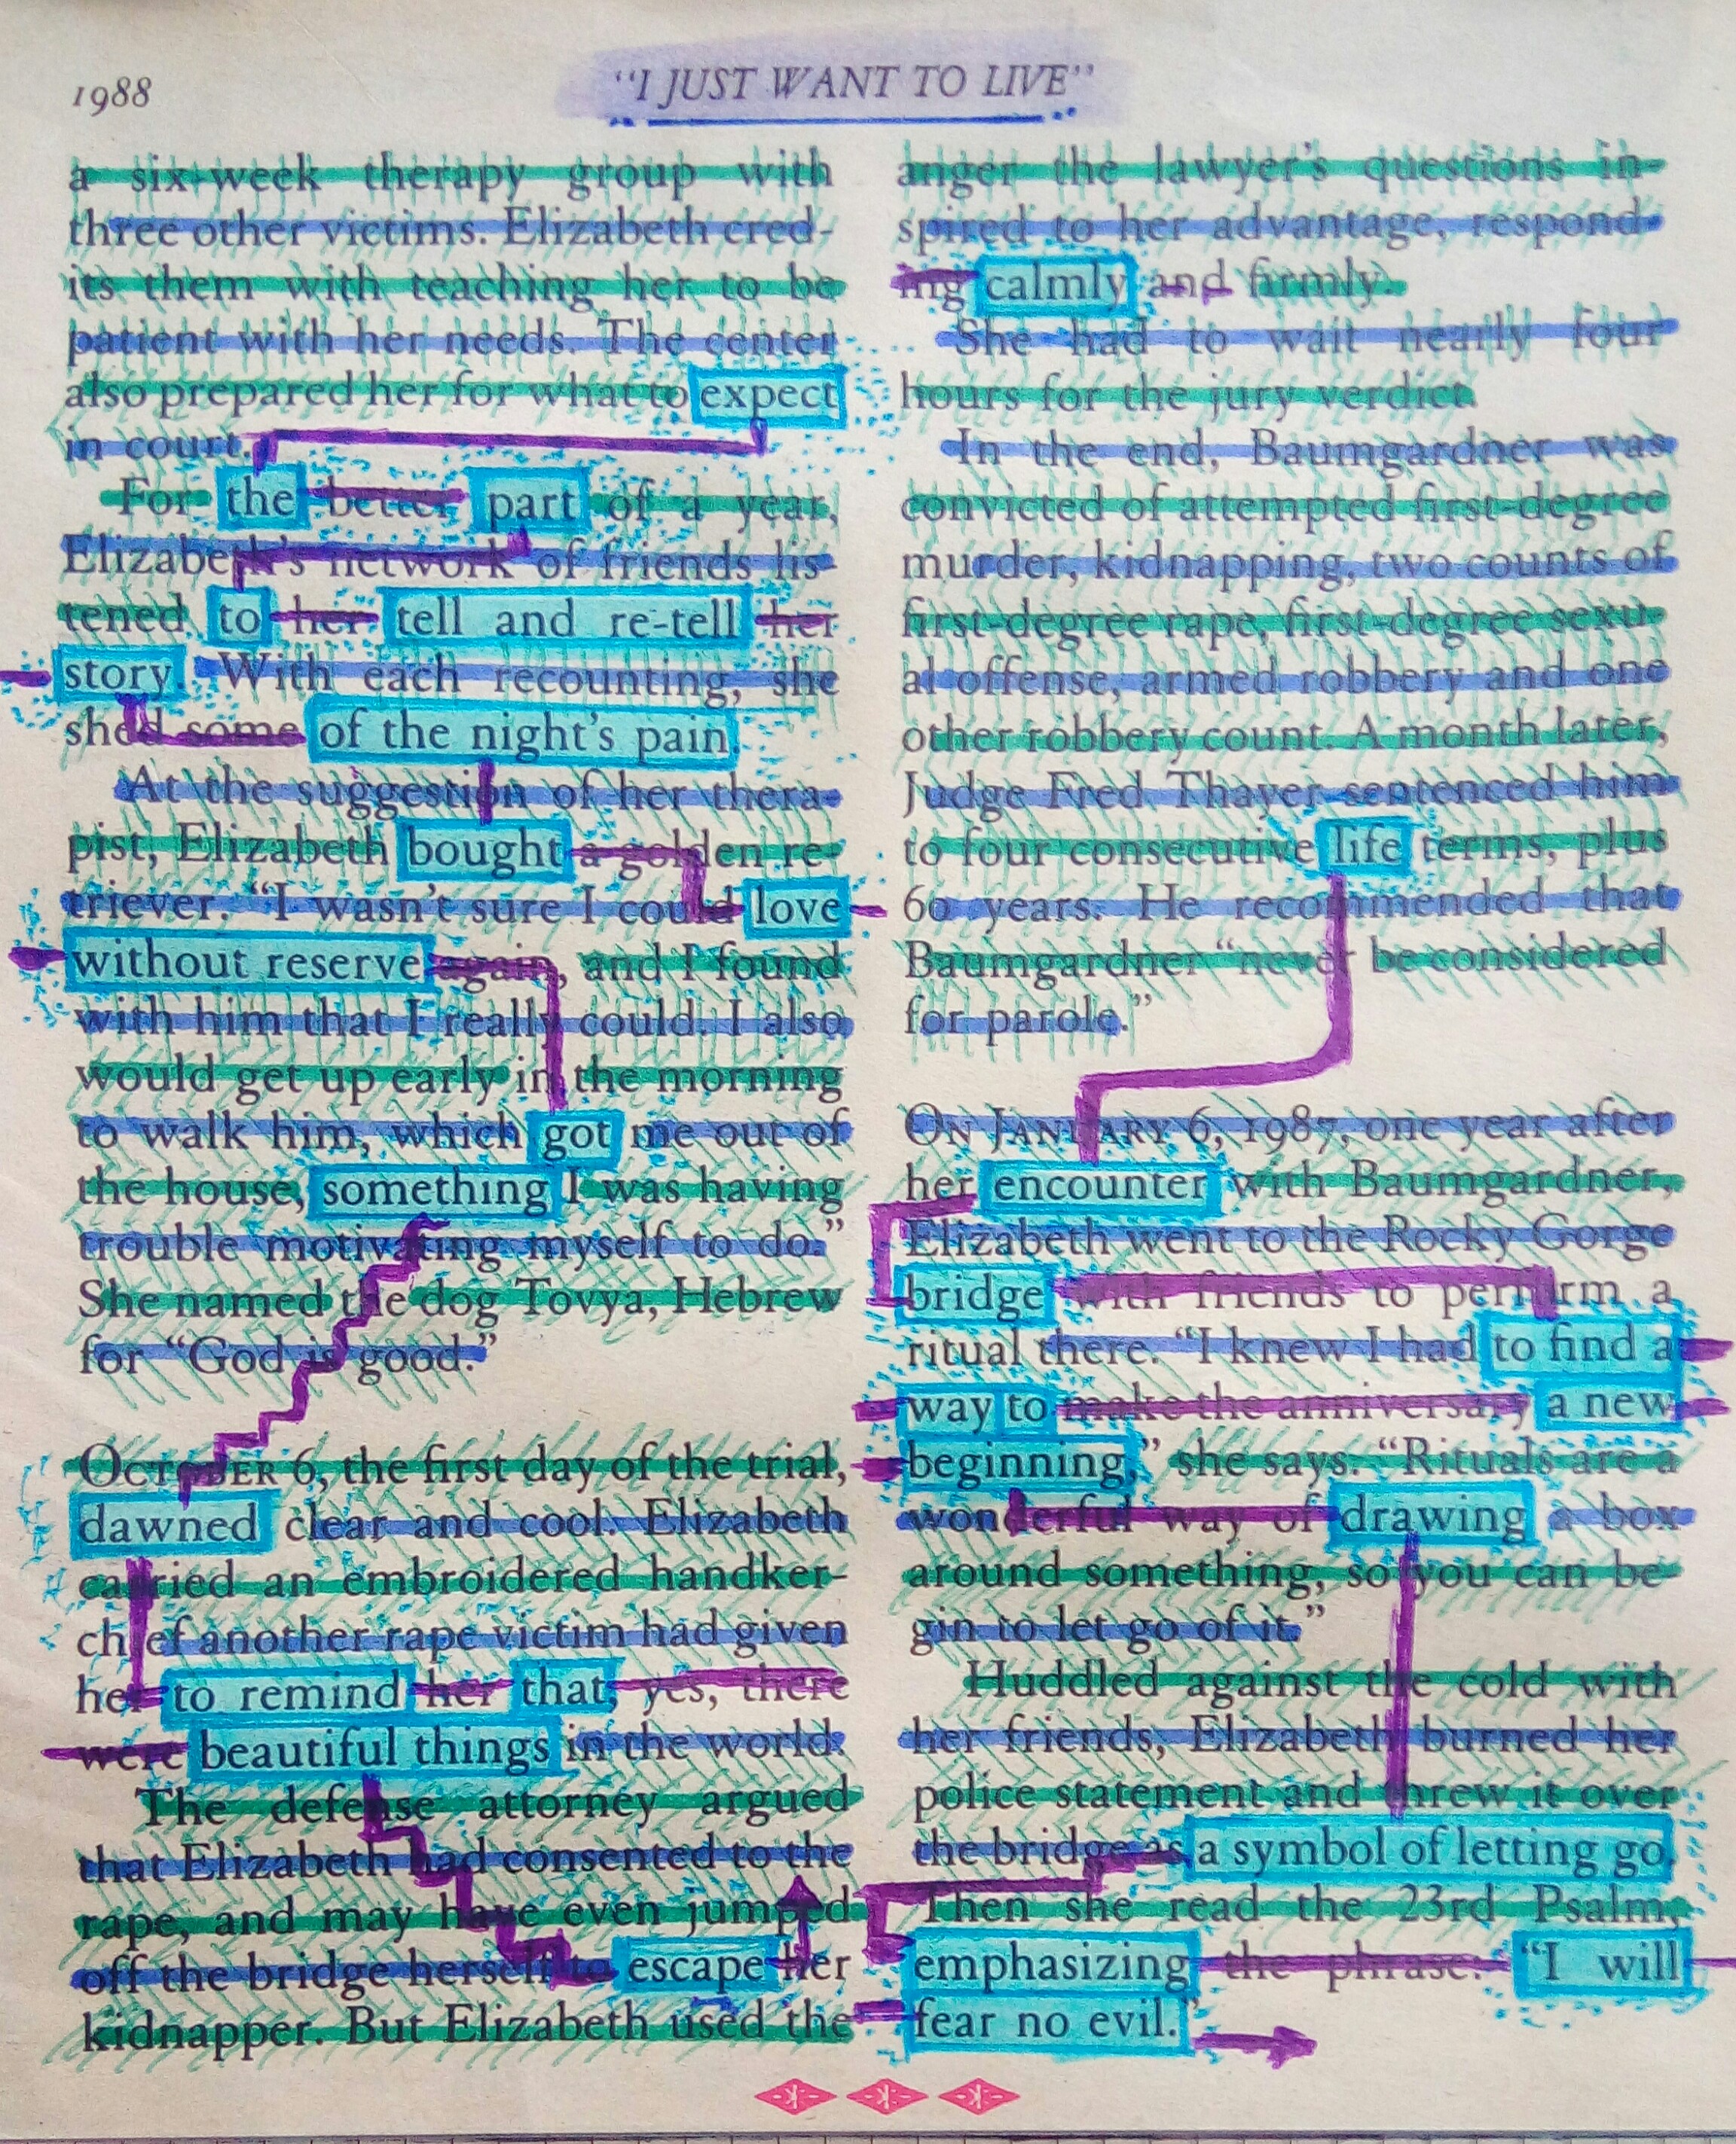 1988
"I JUST WANT TO LIVE"
a six-week therapy group with
three other victims. Elizabeth cred-
its them with teaching her to be
patient with her needs. The center
also prepared her for what to expect
in court.
For the better part of a year,
Elizabeth's network of friends lis-
tened to her tell and re-tell her
story. With each recounting, she
shed some of the night's pain.
At the suggestion of her thera-
pist, Elizabeth bought a golden re-
triever. "I wasn't sure I could love
without reserve again, and I found
with him that I really could. I also
would get up early in the morning
to walk him, which got me out of
the house, something I was having
trouble motivating myself to do."
She named the dog Tovya, Hebrew
for "God is good."
OCTOBER 6, the first day of the trial,
dawned clear and cool. Elizabeth
carried an embroidered handker-
chief another rape victim had given
her to remind her that, yes, there
were beautiful things in the world.
The defense attorney argued
that Elizabeth had consented to the
rape, and may have even jumped
off the bridge herself to escape her
kidnapper. But Elizabeth used the
anger the lawyer's questions in-
spired to her advantage, respond-
ing calmly and firmly.
She had to wait nearly four
hours for the jury verdict.
In the end, Baumgardner was
convicted of attempted first-degree
murder, kidnapping, two counts of
first-degree rape, first-degree sexu-
al offense, armed robbery and one
other robbery count. A month later,
Judge Fred Thayer sentenced him
to four consecutive life terms, plus
60 years. He recommended that
Baumgardner "never be considered
for parole."
ON JANUARY 6, 1987, one year after
her encounter with Baumgardner,
Elizabeth went to the Rocky Gorge
bridge with friends to perform a
ritual there. "I knew I had to find a
way to make the anniversary a new
beginning," she says. "Rituals are a
wonderful way of drawing a box
around something, so you can be-
gin to let go of it."
Huddled against the cold with
her friends, Elizabeth burned her
police statement and threw it over
the bridge as a symbol of letting go.
Then she read the 23rd Psalm,
emphasizing the phrase: "I will
fear no evil."